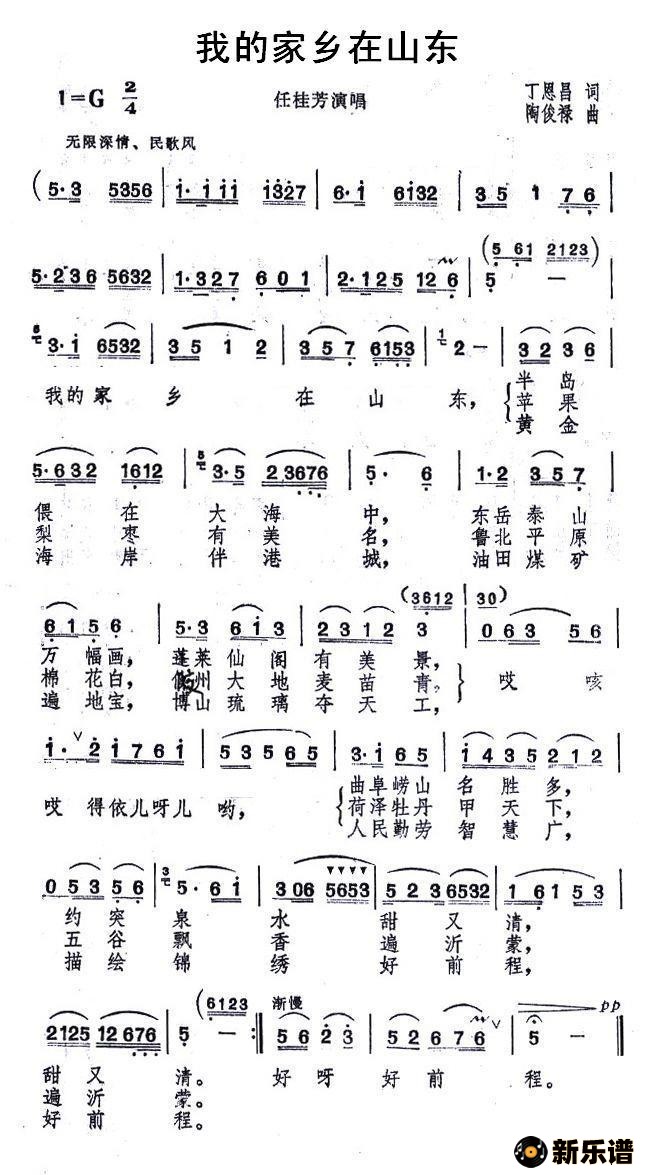 我的家乡在山东
1=G 2/4 任桂芳演唱 丁恩昌 词
陶俊禄 曲
无限深情、民歌风
(5·3 5356 | 1·1 11 1327 | 6·1 6132 | 35 1 76 |
5·236 5632 | 1·327 601 | 2·125 126 | 5 — (5 61 2123) |
3·1 6532 | 35 1 2 | 357 6153 | 2 — | 3236 |
我的家乡在山东, 半岛
苹果
黄金
5·632 1612 | 3·5 23676 | 5· 6 | 1·2 357 |
偎在大海中, 东岳泰山
梨枣有美名, 鲁北平原
海岸伴港城, 油田煤矿
6156 | 5·3 613 | 2312 3 (3612 | 30) 063 56 |
万幅画, 蓬莱仙阁有美景,
棉花白, 州大地麦苗青, 哎咳
遍地宝, 博山琉璃夺天工,
1· 2 1761 | 535 65 | 3·1 65 | 1435 212 |
哎得依儿呀儿哟, 曲阜崂山名胜多,
荷泽牡丹甲天下,
人民勤劳智慧广,
053 56 | 5·61 | 306 5653 | 523 6532 | 161 53 |
约突泉水甜又清,
五谷飘香遍沂蒙,
描绘锦绣好前程,
2125 12676 | 5 — (6123 :‖ 渐慢 56 23 | 52 676 | 5 — ‖ pp
甜又清。 好呀好前程。
遍沂蒙。
好前程。
新乐谱